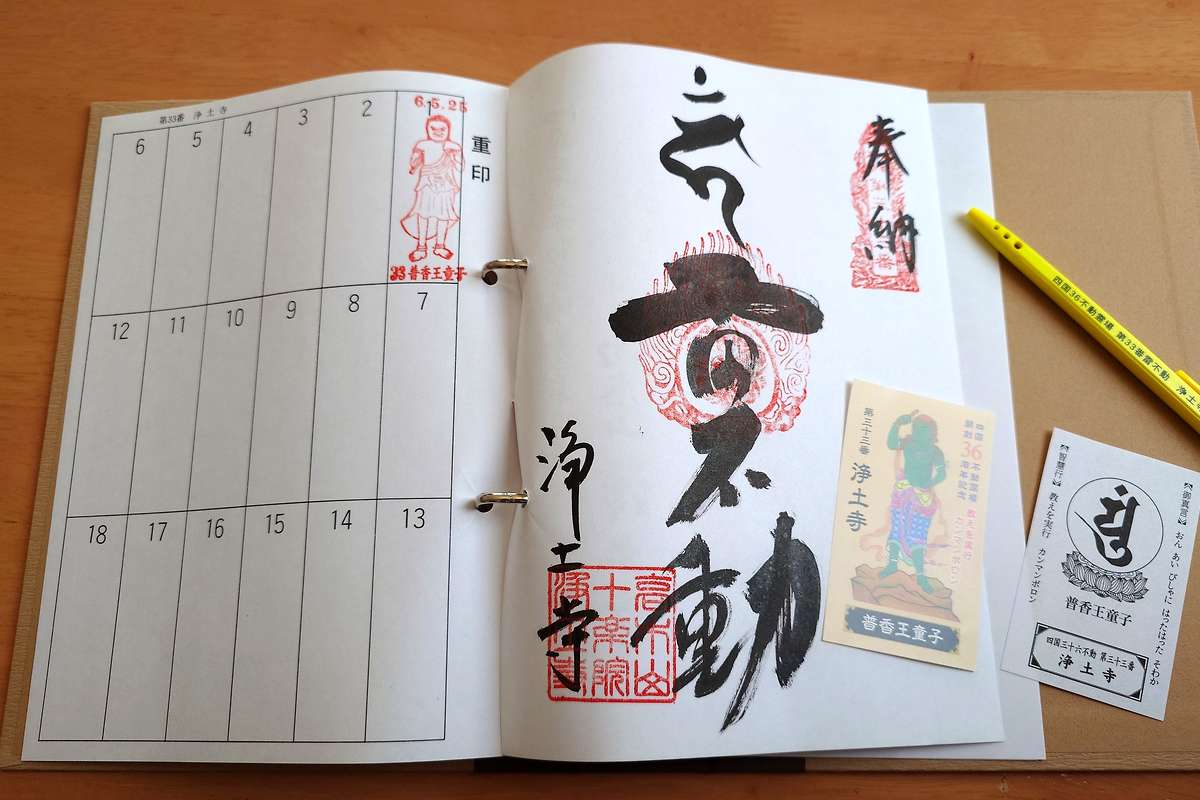 第33番 浄土寺
重印
6.5.25
1
33 普香王童子
2
3
4
5
6
7
8
9
10
11
12
13
14
15
16
17
18
奉納
雷不動
浄土寺
十楽院
四国36不動霊場 第33番雷不動 浄土
四国36不動霊場
開創36周年記念
教えを実行
カンマンボロン
第三十三番 浄土寺
普香王童子
【御真言】 おん あい びしゃに はったはった そわか
【智慧行】 教えを実行 カンマンボロン
普香王童子
四国三十六不動 第三十三番
浄土寺